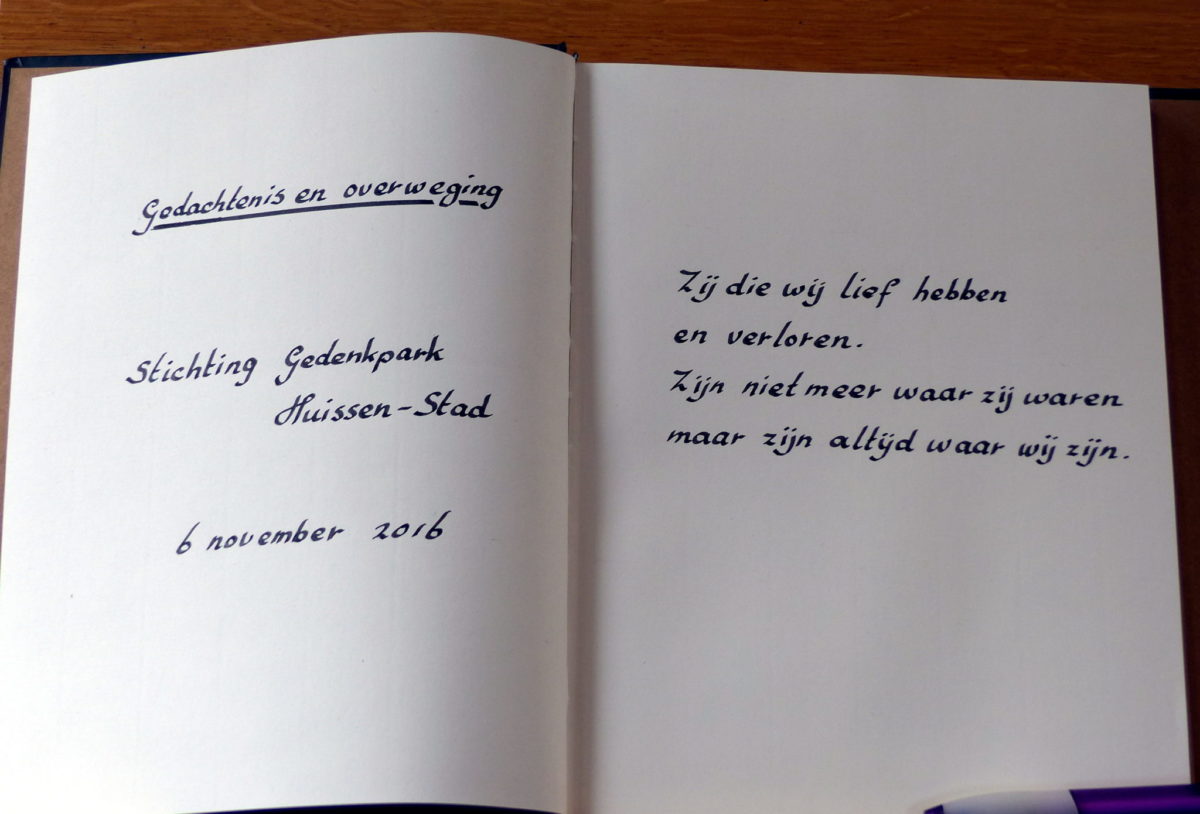 Gedachtenis en overweging
Stichting Gedenkpark
Huissen-Stad
6 november 2016
Zij die wij lief hebben
en verloren.
Zijn niet meer waar zij waren
maar zijn altijd waar wij zijn.